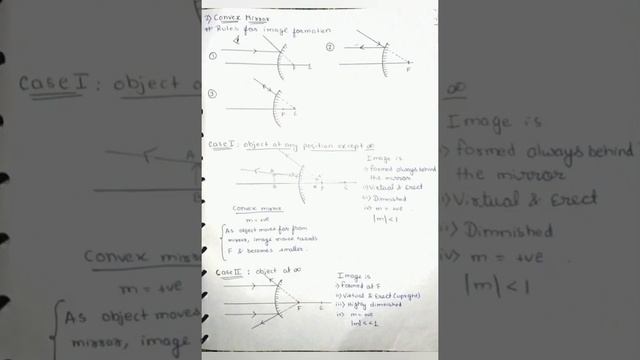 2) Convex Mirror
** Rules for image formation
①
F C
②
F
③
F C
Case I: object at any position except ∞
Image is
i) formed always behind
the mirror
ii) Virtual & Erect
iii) Diminished
iv) m = +ve
|m| < 1
A
B
F C
Convex mirror
m = +ve
As object moves far from
mirror, image moves towards
F & becomes smaller.
Case II: object at ∞
Image is
i) formed at F
ii) Virtual & Erect (upright)
iii) Highly diminished
iv) m = +ve
|m| << 1
F C
Case I: object a
∞
Image is
formed always behind
the mirror
Virtual & Erect
Diminished
iv) m = +ve
|m| < 1
Convex mirr
m = +ve
As object moves
mirror, image